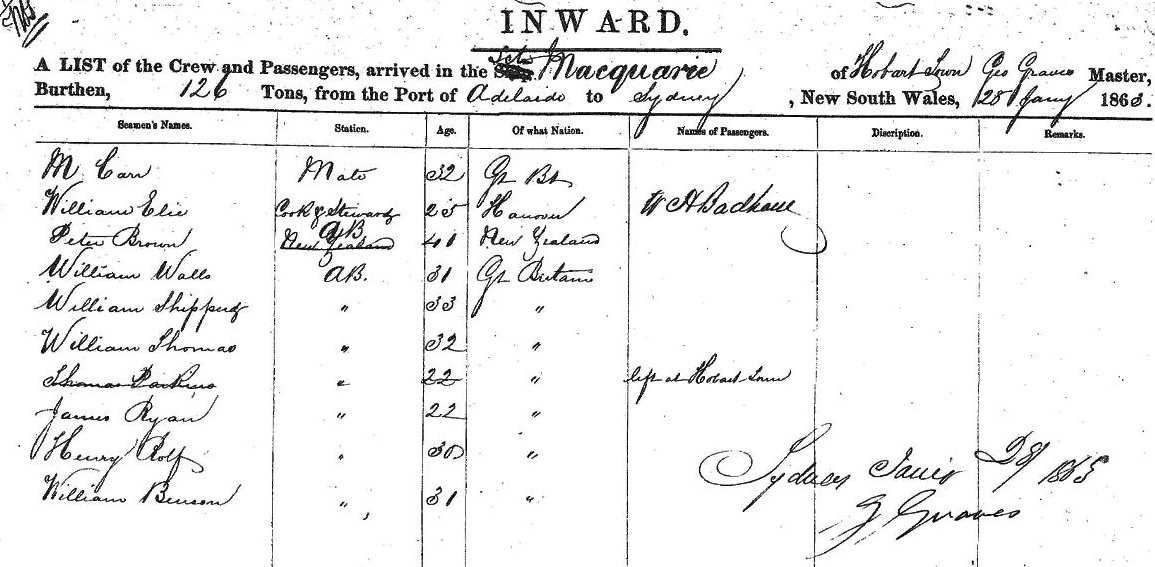 INWARD.
A LIST of the Crew and Passengers, arrived in the Ship Schr Macquarie of Hobart Town Geo Graves Master,
Burthen, 126 Tons, from the Port of Adelaide to Sydney, New South Wales, 28 Jany 1863.
Seamen's Names. Station. Age. Of what Nation. Names of Passengers. Discription. Remarks.
M. Carr Mate 32 Gt Bt
William Elie Cook & Steward 25 Hanover W H Badkause
Peter Brown New Zealand AB 40 New Zealand
William Walls AB. 31 Gt Britain
William Shipperd " 33 "
William Thomas " 32 "
Thomas " 22 " left at Hobart Town
James Ryan " 22 "
Henry Rolf " 30 "
William Benson " 31 "
Sydney 28/1863
G Graves